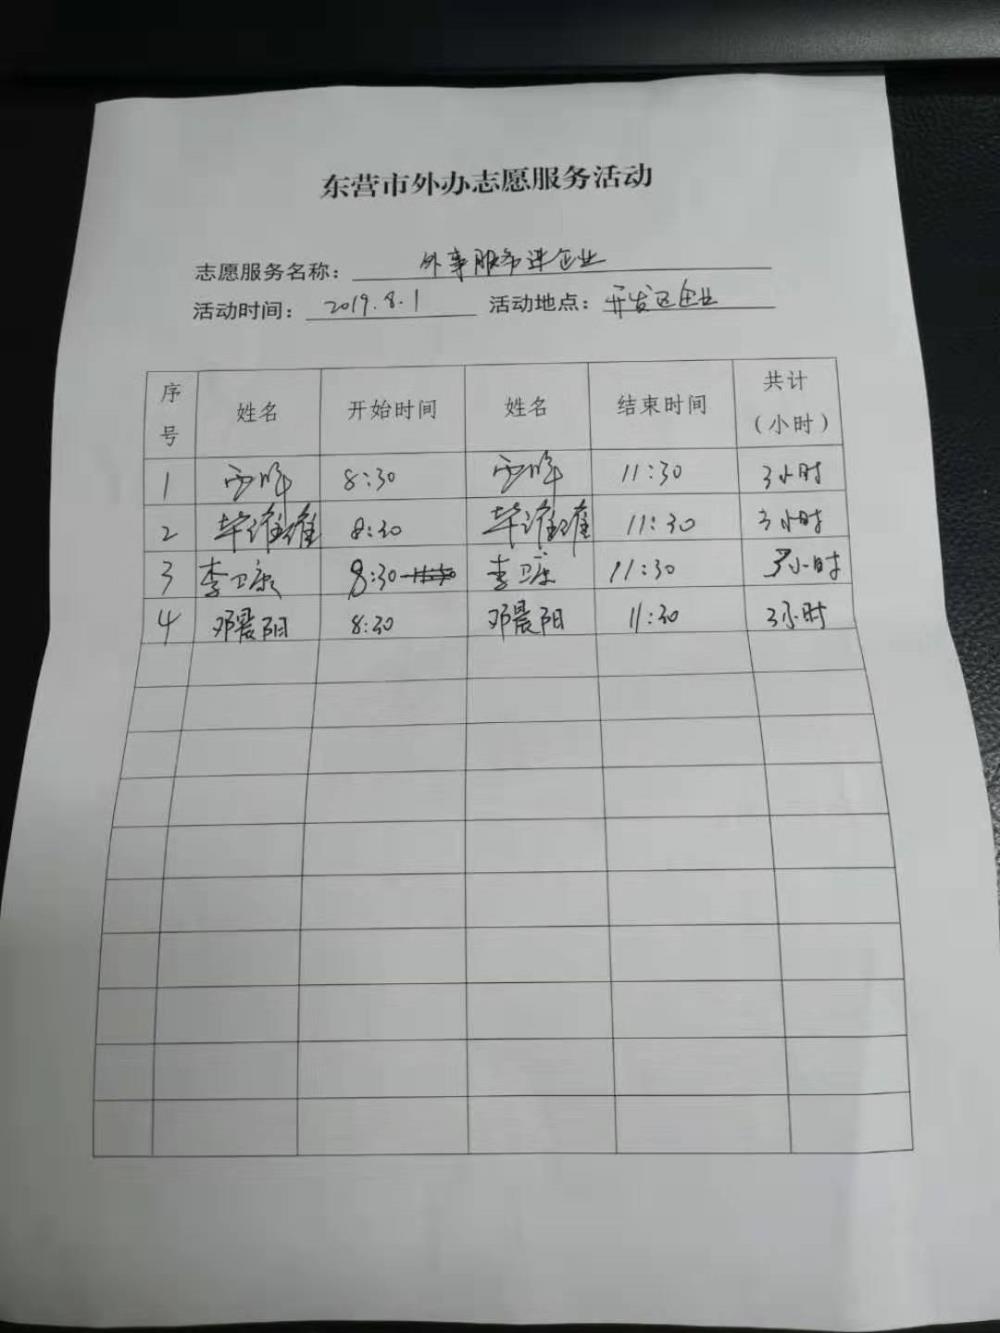 东营市外办志愿服务活动
志愿服务名称： 外事服务进企业
活动时间： 2019.8.1 活动地点： 开发区企业
序号 姓名 开始时间 姓名 结束时间 共计（小时）
1 8:30 11:30 3小时
2 毕维维 8:30 毕维维 11:30 3小时
3 李卫康 8:30 李卫康 11:30 3小时
4 邓晨阳 8:30 邓晨阳 11:30 3小时